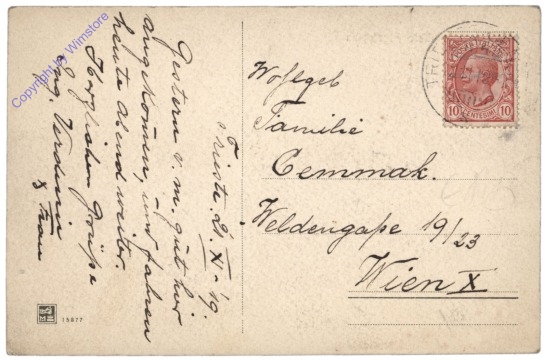 Triest 21/XI - 19.
Gestern v. m. gut hier
angekommen, und fahren
heute abend weiter.
Herzlichen Grüße
Ing. Verdini
& Frau
Wohlgeb
Familie
Cemmak.
Weldengaße 19/23
Wien X
10 CENTESIMI 10
15877
Copyright by Wimstore